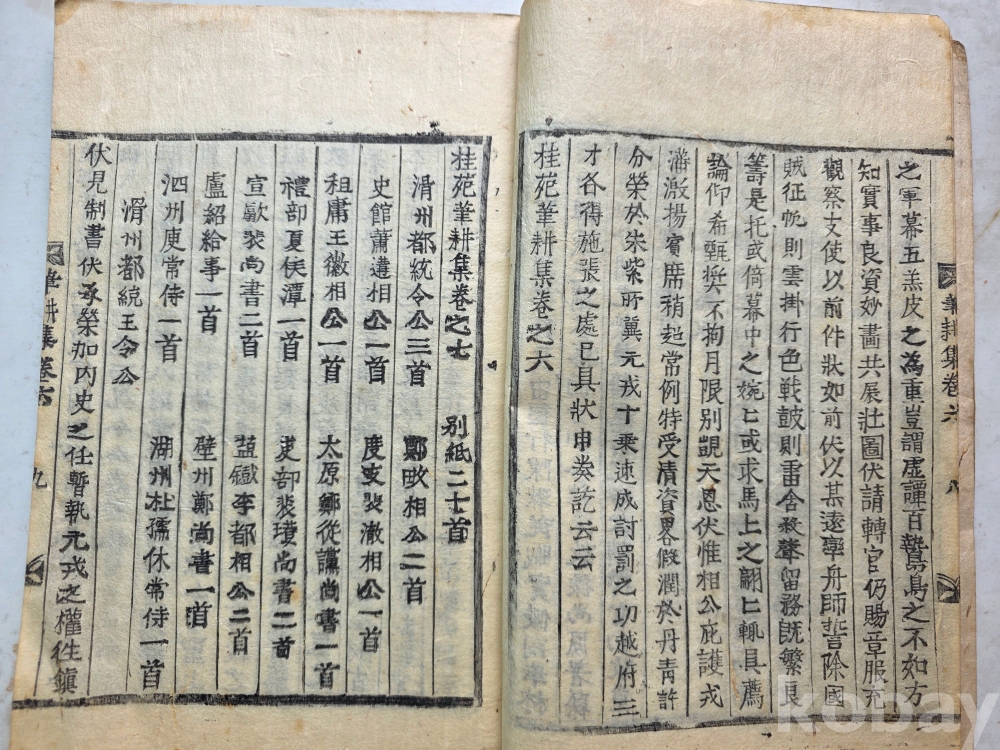 之軍幕五羔皮之為重豈謂虛譚百鷙鳥之不如方
知實事良資妙畫共展壯圖伏請轉官仍賜章服充
觀察支使以前件狀如前伏以某遠率舟師誓除國
賊征帆則雲掛行色戰鼓則雷含殺聲留務旣繁良
籌是托或倚幕中之婉匕或求馬上之翩匕輒具薦
論仰希甄奬不拘月限別覬天恩伏惟相公庇護戎
藩激揚賓席稍起常例特受淸資畧假潤於丹靑許
分榮於朱紫所冀元戎十乘速成討罰之功越府三
才各得施張之處已具狀申奏訖云云
桂苑筆耕集卷之六
筆耕集卷六
八
桂苑筆耕集卷之七
別紙二十首
滑州都統令公三首
鄭畋相公二首
史館蕭遘相公一首
度支裴澈相公一首
租庸王徽相公一首
太原鄭從讜尚書一首
禮部夏侯潭一首
吏部裴瓚尚書二首
宣歙裴尚書二首
盐鐵李都相公二首
盧紹給事一首
壁州鄭尚書一首
泗州庾常侍一首
湖州杜孺休常侍一首
滑州都統王令公
伏見制書伏承榮加內史之任暫執元戎之權往鎭
筆耕集卷六
九
kobay